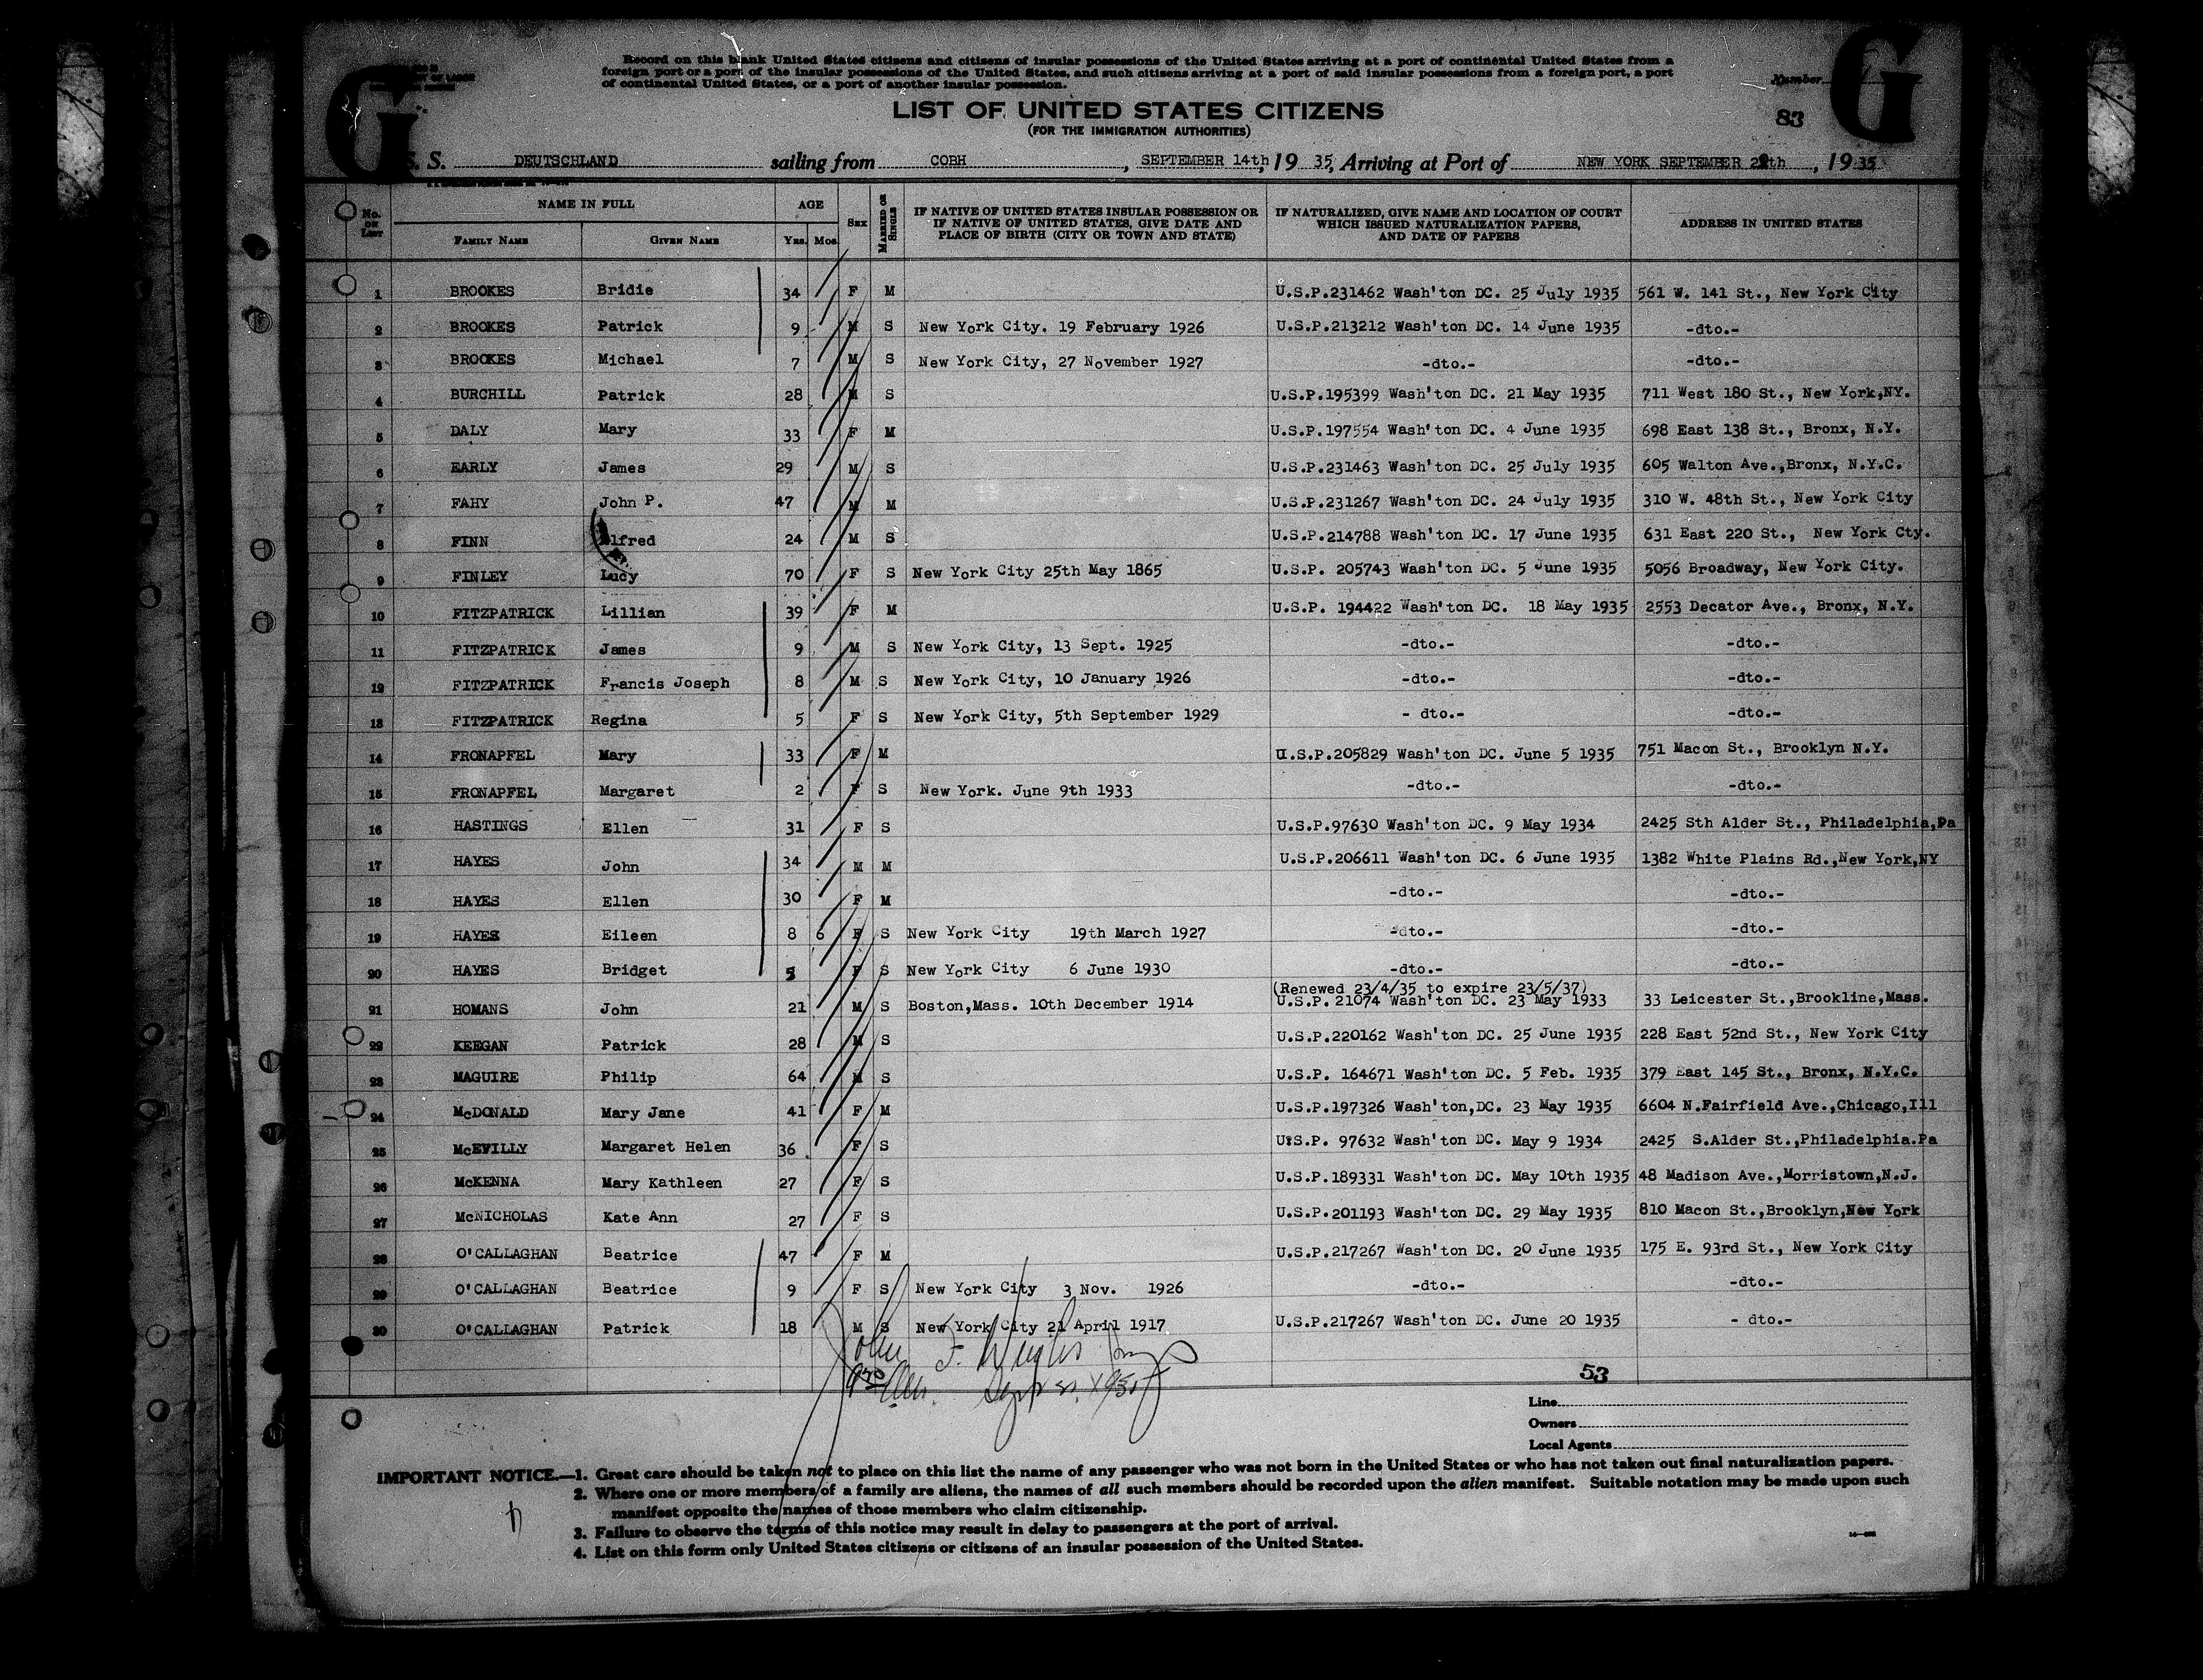 Record on this blank United States citizens and citizens of insular possessions of the United States arriving at a port of continental United States from a
foreign port or a port of the insular possessions of the United States, and such citizens arriving at a port of said insular possessions from a foreign port, a port
of continental United States, or a port of another insular possession.
Number
G G
LIST OF UNITED STATES CITIZENS
83
(FOR THE IMMIGRATION AUTHORITIES)
S. S. DEUTSCHLAND sailing from COBH, SEPTEMBER 14th, 19 35, Arriving at Port of NEW YORK SEPTEMBER, 19 35
No. on List NAME IN FULL AGE Sex Married or Single IF NATIVE OF UNITED STATES INSULAR POSSESSION OR IF NATIVE OF UNITED STATES, GIVE DATE AND PLACE OF BIRTH (CITY OR TOWN AND STATE) IF NATURALIZED, GIVE NAME AND LOCATION OF COURT WHICH ISSUED NATURALIZATION PAPERS, AND DATE OF PAPERS ADDRESS IN UNITED STATES
Family Name Given Name Yrs. Mos.
1 BROOKES Bridie 34 F M U.S.P.231462 Wash'ton DC. 25 July 1935 561 W. 141 St., New York City
2 BROOKES Patrick 9 M S New York City. 19 February 1926 U.S.P.213212 Wash'ton DC. 14 June 1935 -dto.-
3 BROOKES Michael 7 M S New York City, 27 November 1927 -dto.- -dto.-
4 BURCHILL Patrick 28 M S U.S.P.195399 Wash'ton DC. 21 May 1935 711 West 180 St., New York,NY.
5 DALY Mary 33 F M U.S.P.197554 Wash'ton DC. 4 June 1935 698 East 138 St., Bronx, N.Y.
6 EARLY James 29 M S U.S.P.231463 Wash'ton DC. 25 July 1935 605 Walton Ave.,Bronx, N.Y.C.
7 FAHY John P. 47 M M U.S.P.231267 Wash'ton DC. 24 July 1935 310 W. 48th St., New York City
8 FINN Alfred 24 M S U.S.P.214788 Wash'ton DC. 17 June 1935 631 East 220 St., New York Cty.
9 FINLEY Lucy 70 F S New York City 25th May 1865 U.S.P. 205743 Wash'ton DC. 5 June 1935 5056 Broadway, New York City.
10 FITZPATRICK Lillian 39 F M U.S.P. 194422 Wash'ton DC. 18 May 1935 2553 Decator Ave., Bronx, N.Y.
11 FITZPATRICK James 9 M S New York City, 13 Sept. 1925 -dto.- -dto.-
12 FITZPATRICK Francis Joseph 8 M S New York City, 10 January 1926 -dto.- -dto.-
13 FITZPATRICK Regina 5 F S New York City, 5th September 1929 - dto.- -dto.-
14 FRONAPFEL Mary 33 F M U.S.P.205829 Wash'ton DC. June 5 1935 751 Macon St., Brooklyn N.Y.
15 FRONAPFEL Margaret 2 F S New York. June 9th 1933 -dto.- -dto.-
16 HASTINGS Ellen 31 F S U.S.P.97630 Wash'ton DC. 9 May 1934 2425 Sth Alder St., Philadelphia,Pa
17 HAYES John 34 M M U.S.P.206611 Wash'ton DC. 6 June 1935 1382 White Plains Rd.,New York,NY
18 HAYES Ellen 30 F M -dto.- -dto.-
19 HAYES Eileen 8 6 F S New York City 19th March 1927 -dto.- -dto.-
20 HAYES Bridget 5 F S New York City 6 June 1930 -dto.- -dto.-
(Renewed 23/4/35 to expire 23/5/37)
21 HOMANS John 21 M S Boston,Mass. 10th December 1914 U.S.P. 21074 Wash'ton DC. 23 May 1933 33 Leicester St.,Brookline,Mass.
22 KEEGAN Patrick 28 M S U.S.P.220162 Wash'ton DC. 25 June 1935 228 East 52nd St., New York City
23 MAGUIRE Philip 64 M S U.S.P. 164671 Wash'ton DC. 5 Feb. 1935 379 East 145 St., Bronx, N.Y.C.
24 McDONALD Mary Jane 41 F M U.S.P.197326 Wash'ton,DC. 23 May 1935 6604 N.Fairfield Ave.,Chicago,Ill
25 McEVILLY Margaret Helen 36 F S U.S.P. 97632 Wash'ton DC. May 9 1934 2425 S.Alder St.,Philadelphia.Pa
26 McKENNA Mary Kathleen 27 F S U.S.P.189331 Wash'ton DC. May 10th 1935 48 Madison Ave.,Morristown,N.J.
27 McNICHOLAS Kate Ann 27 F S U.S.P.201193 Wash'ton DC. 29 May 1935 810 Macon St.,Brooklyn,New York
28 O'CALLAGHAN Beatrice 47 F M U.S.P.217267 Wash'ton DC. 20 June 1935 175 E. 93rd St., New York City
29 O'CALLAGHAN Beatrice 9 F S New York City 3 Nov. 1926 -dto.- -dto.-
30 O'CALLAGHAN Patrick 18 M S New York City 21 April 1917 U.S.P.217267 Wash'ton DC. June 20 1935 - dto.-
John F.
53
Line
Owners
Local Agents
IMPORTANT NOTICE.—1. Great care should be taken not to place on this list the name of any passenger who was not born in the United States or who has not taken out final naturalization papers.
2. Where one or more members of a family are aliens, the names of all such members should be recorded upon the alien manifest. Suitable notation may be made upon such
manifest opposite the names of those members who claim citizenship.
3. Failure to observe the terms of this notice may result in delay to passengers at the port of arrival.
4. List on this form only United States citizens or citizens of an insular possession of the United States.